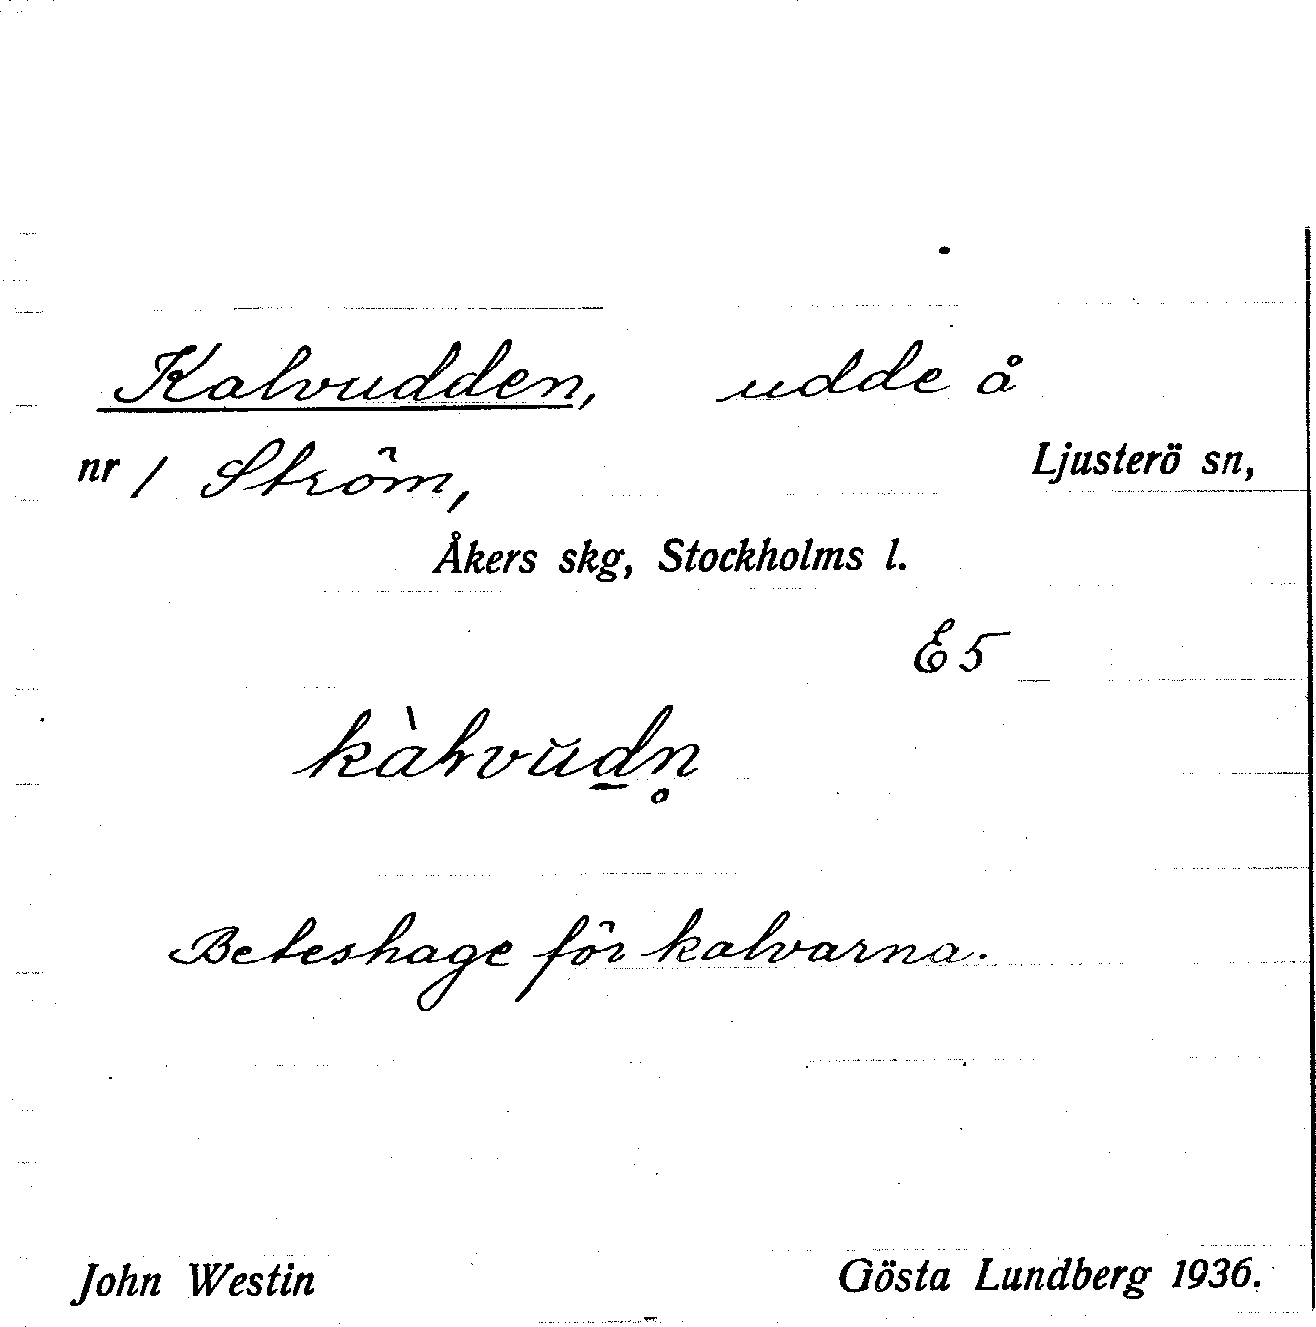 Kalvudden, udde å
nr 1 Ström, Ljusterö sn,
Åkers skg, Stockholms l.
E5
kàlvŭd̲n̥
Beteshage för kalvarna.
John Westin Gösta Lundberg 1936.